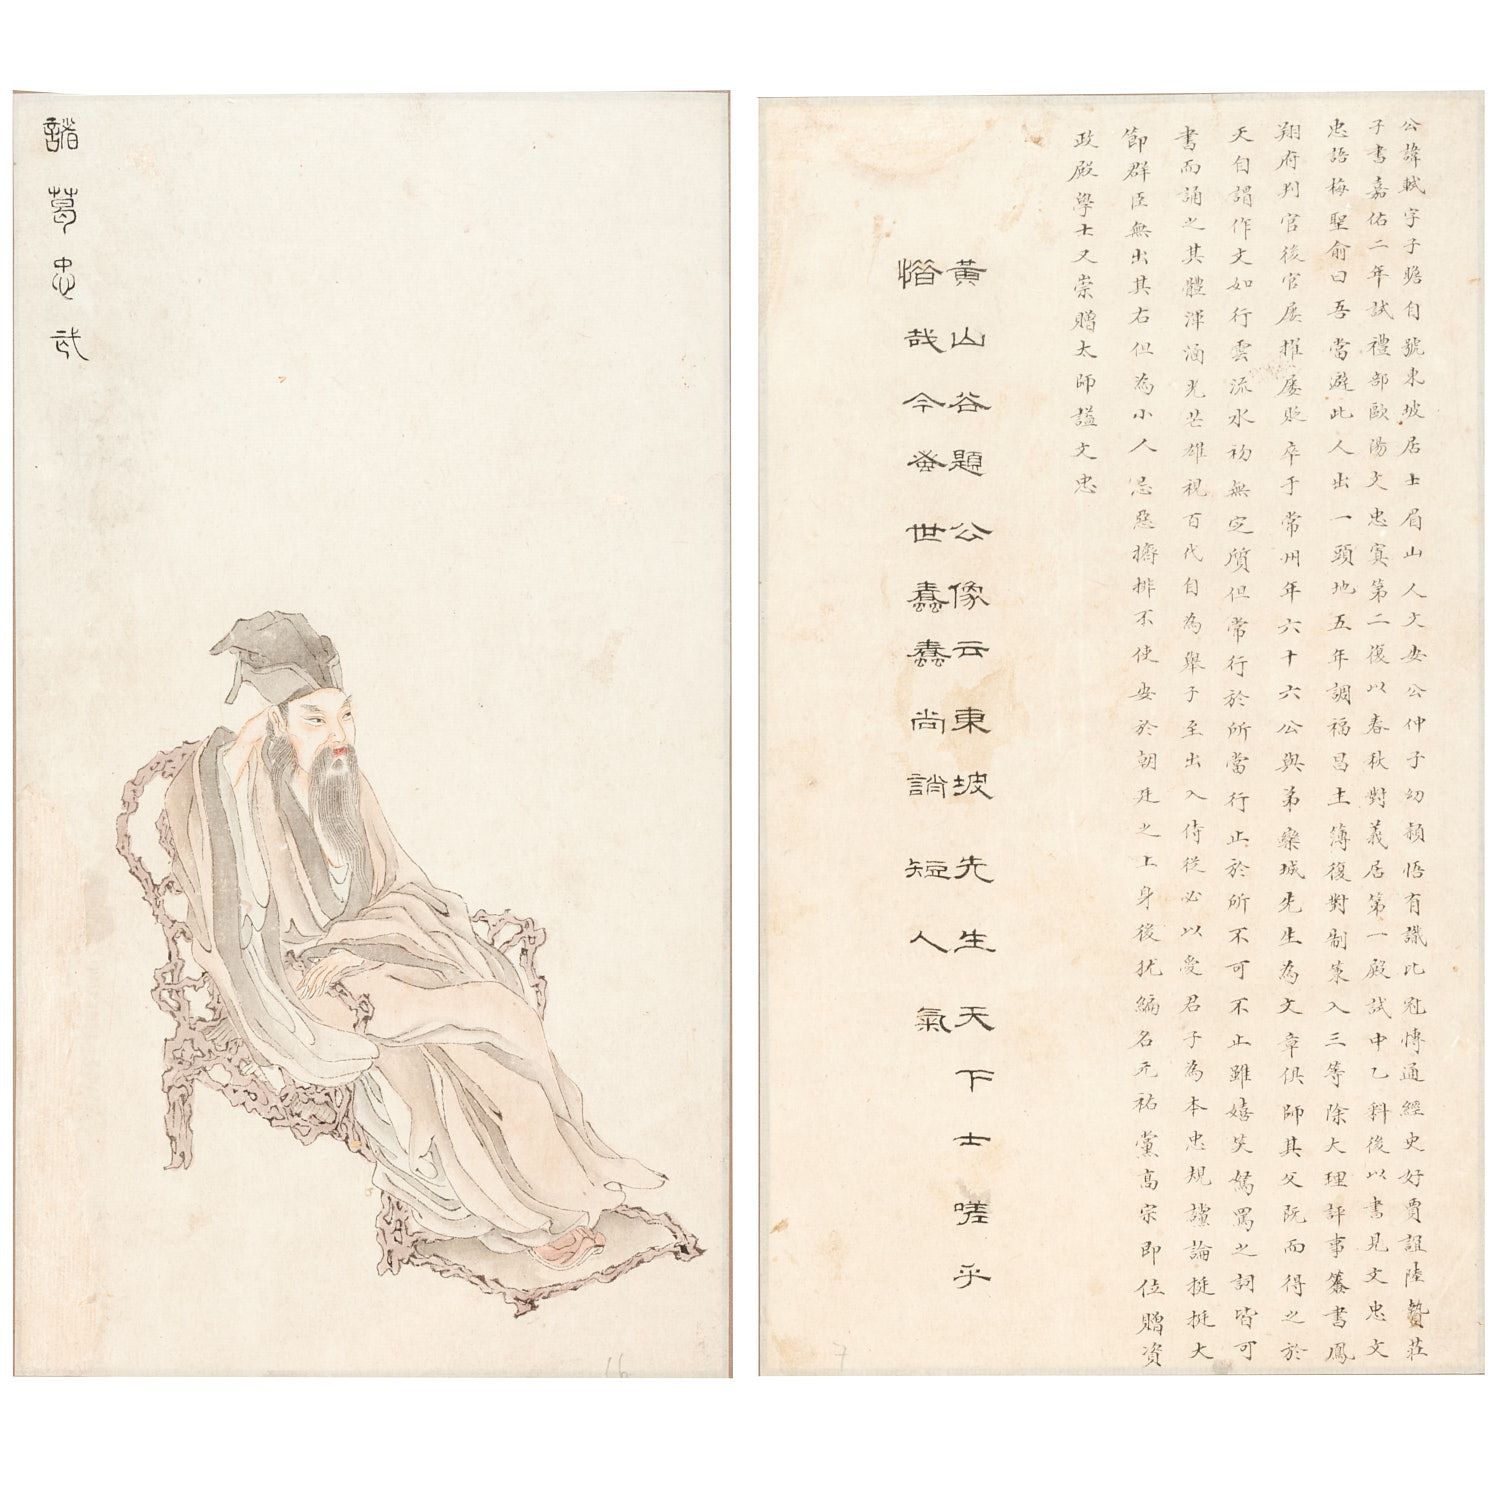 諸葛忠武
公諱軾字子瞻自號東坡居士眉山人文安公仲子幼穎悟有識比冠博通經史好賈誼陸贄莊
子書嘉佑二年試禮部歐陽文忠寘第二復以春秋對義居第一殿試中乙科後以書見文忠文
忠語梅聖俞曰吾當避此人出一頭地五年調福昌主簿復對制策入三等除大理評事簽書鳳
翔府判官後官屢擢屢貶卒于常州年六十六公與弟欒城先生為文章俱師其父既而得之於
天自謂作文如行雲流水初無定質但常行於所當行止於所不可不止雖嬉笑怒罵之詞皆可
書而誦之其體渾涵光芒雄視百代自為舉子至出入侍從必以愛君子為本忠規讜論挺挺大
節群臣無出其右但為小人忌惡擠排不使安於朝廷之上身後猶編名元祐黨高宗即位贈資
政殿學士又崇贈太師謚文忠
黃山谷題公像云東坡先生天下士嗟乎
惜哉今蚤世蠢蠢尚誚短人氣